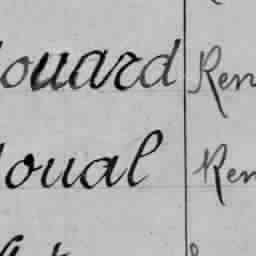 ouard Ren
oual Ren